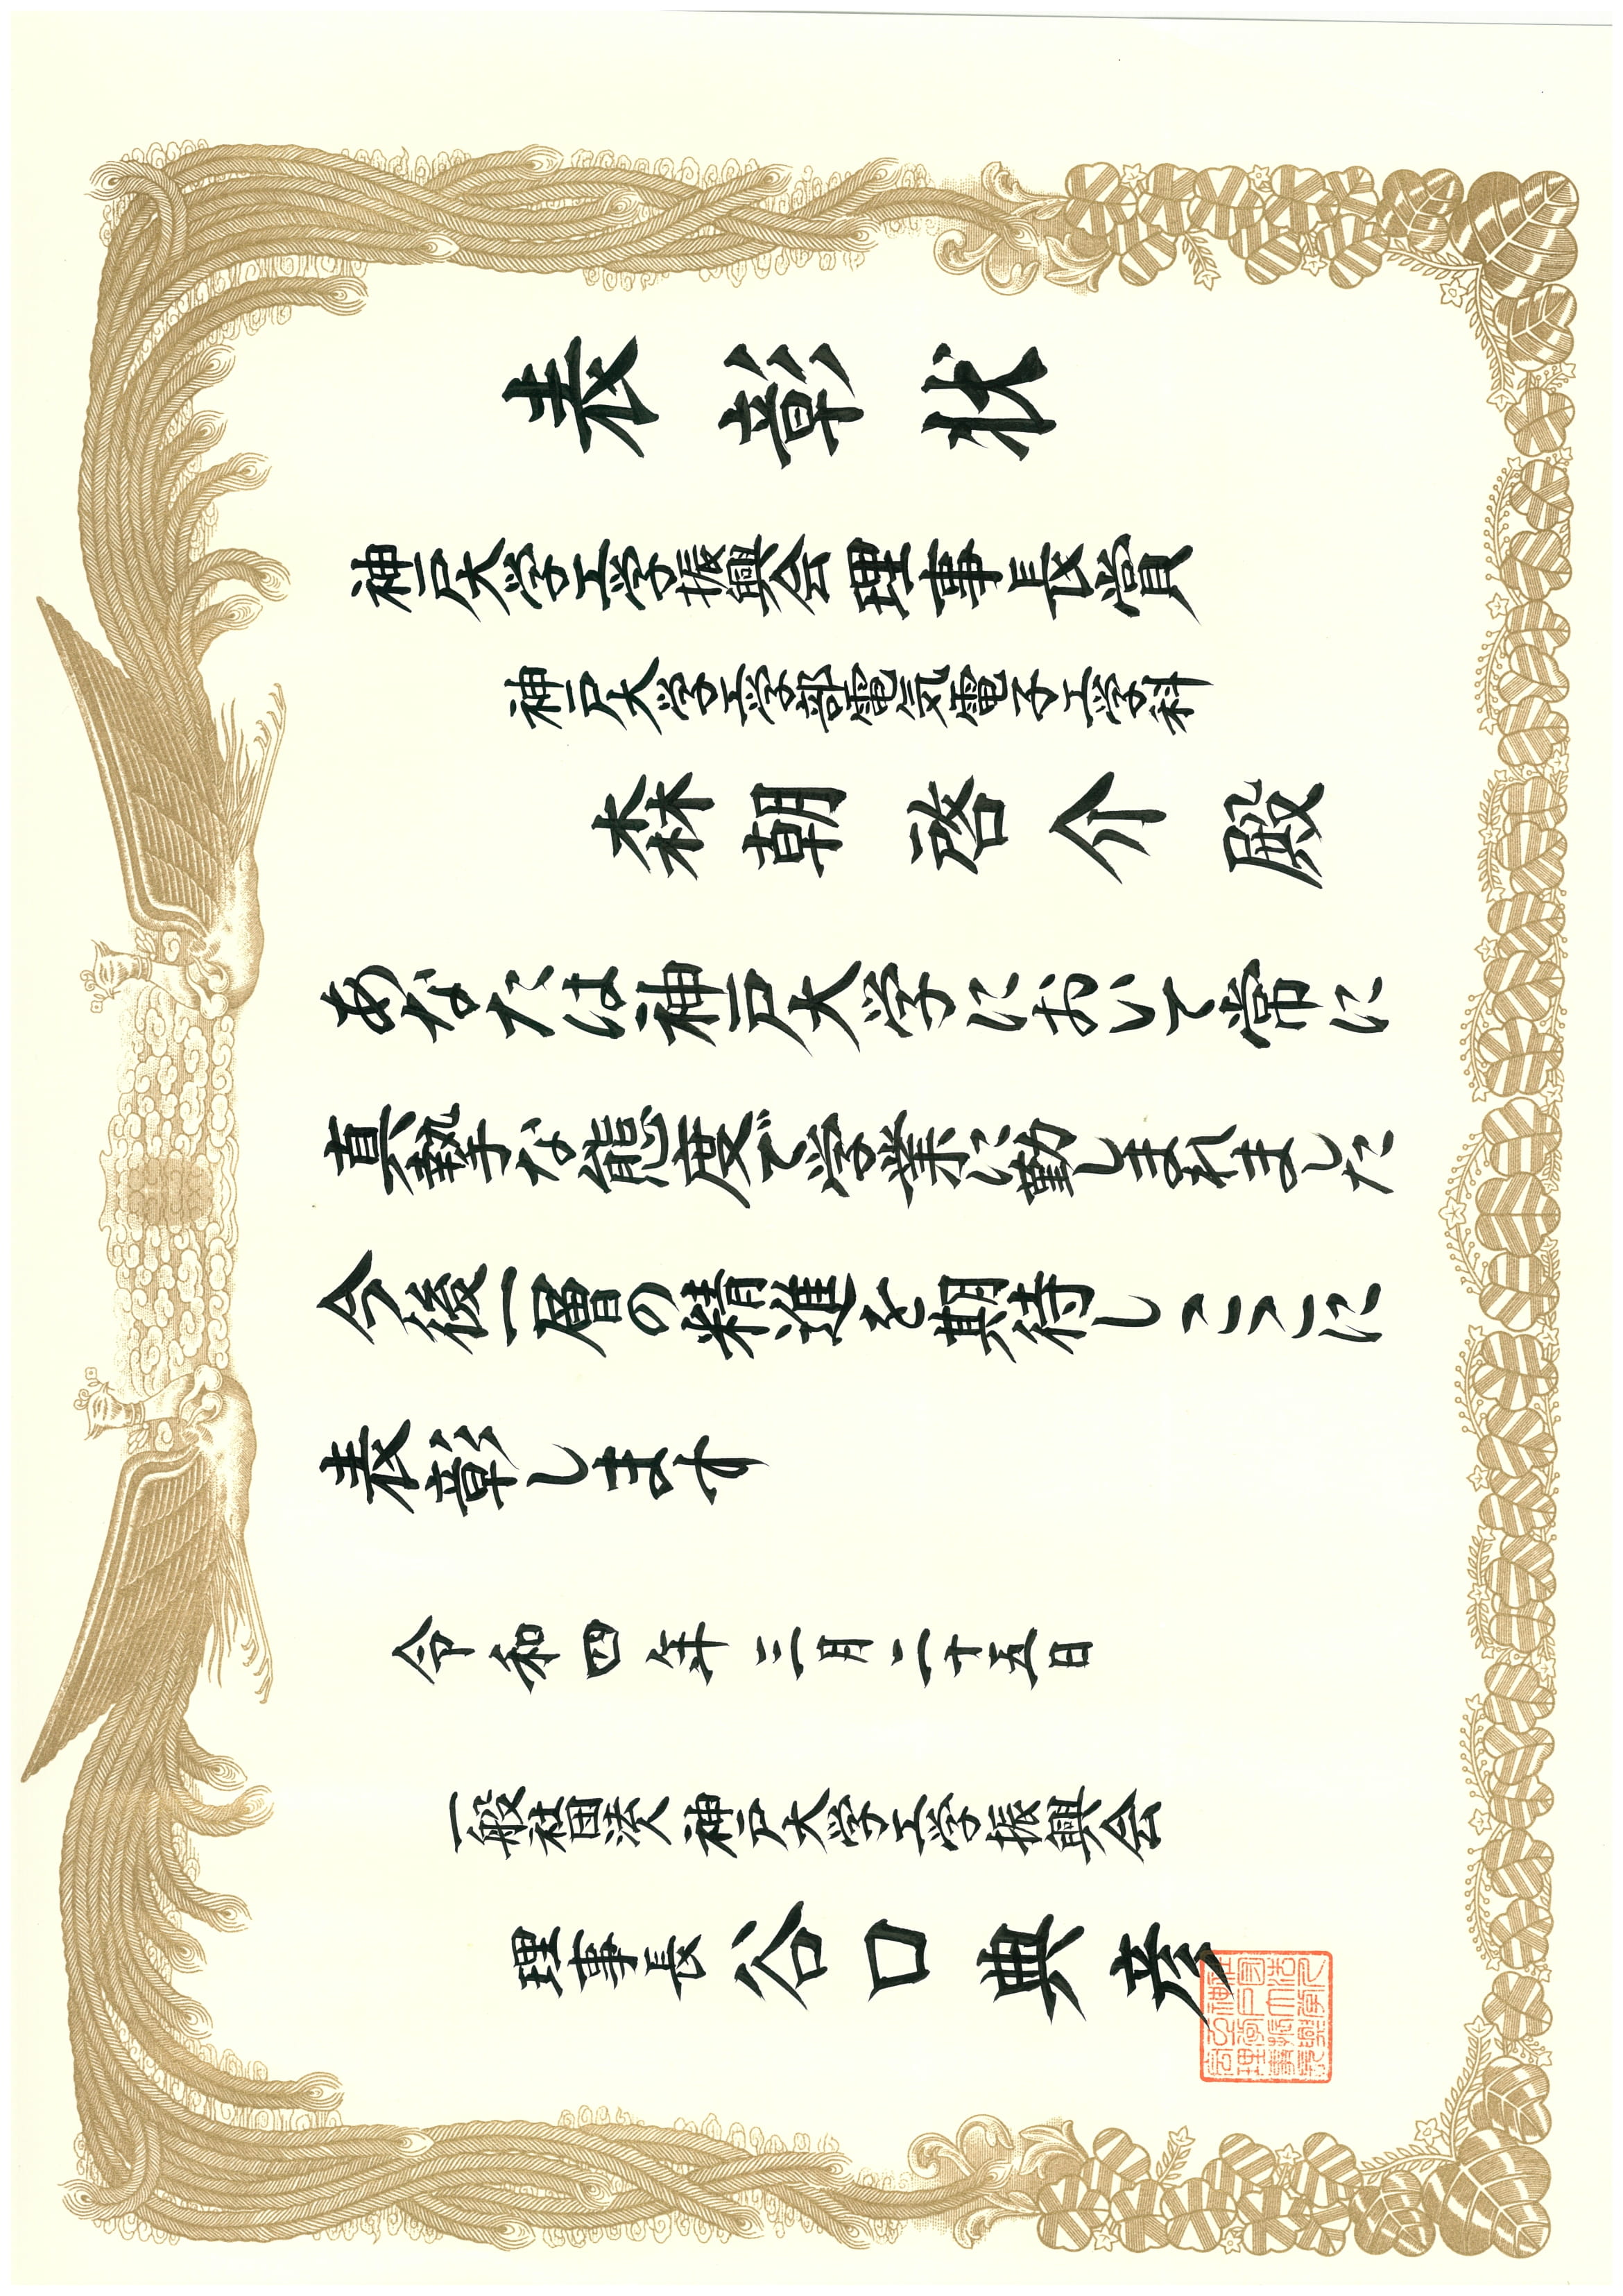 表彰状
神戸大学工学振興会理事長賞
神戸大学工学部電気電子工学科
森朝啓介殿
あなたは神戸大学において常に
真摯な態度で学業に勤しまれました
今後一層の精進を期待しここに
表彰します
令和四年三月二十五日
一般社団法人神戸大学工学振興会
理事長谷口典彦